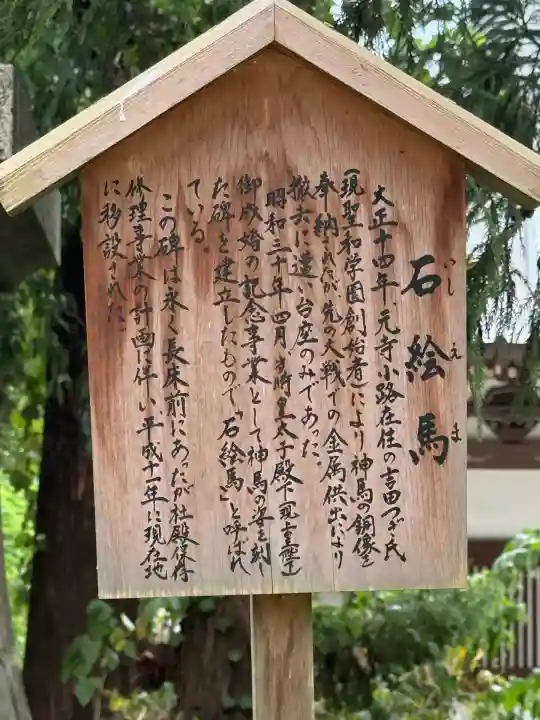 石絵馬
いしえま
大正十四年、元寺小路在住の吉田つが氏
(現聖和学園創始者)により神馬の銅像を
奉納されたが、先の大戦での金属供出により
撤去に遭い台座のみであった。
昭和三十年四月、当時皇太子殿下(現上皇陛下)
御成婚の記念事業として神馬の姿を刻し
た碑を建立したもので「石絵馬」と呼ばれ
ている。
この碑は永く長床前にあったが社殿保存
修理事業の計画に伴い、平成十一年に現在地
に移設された。